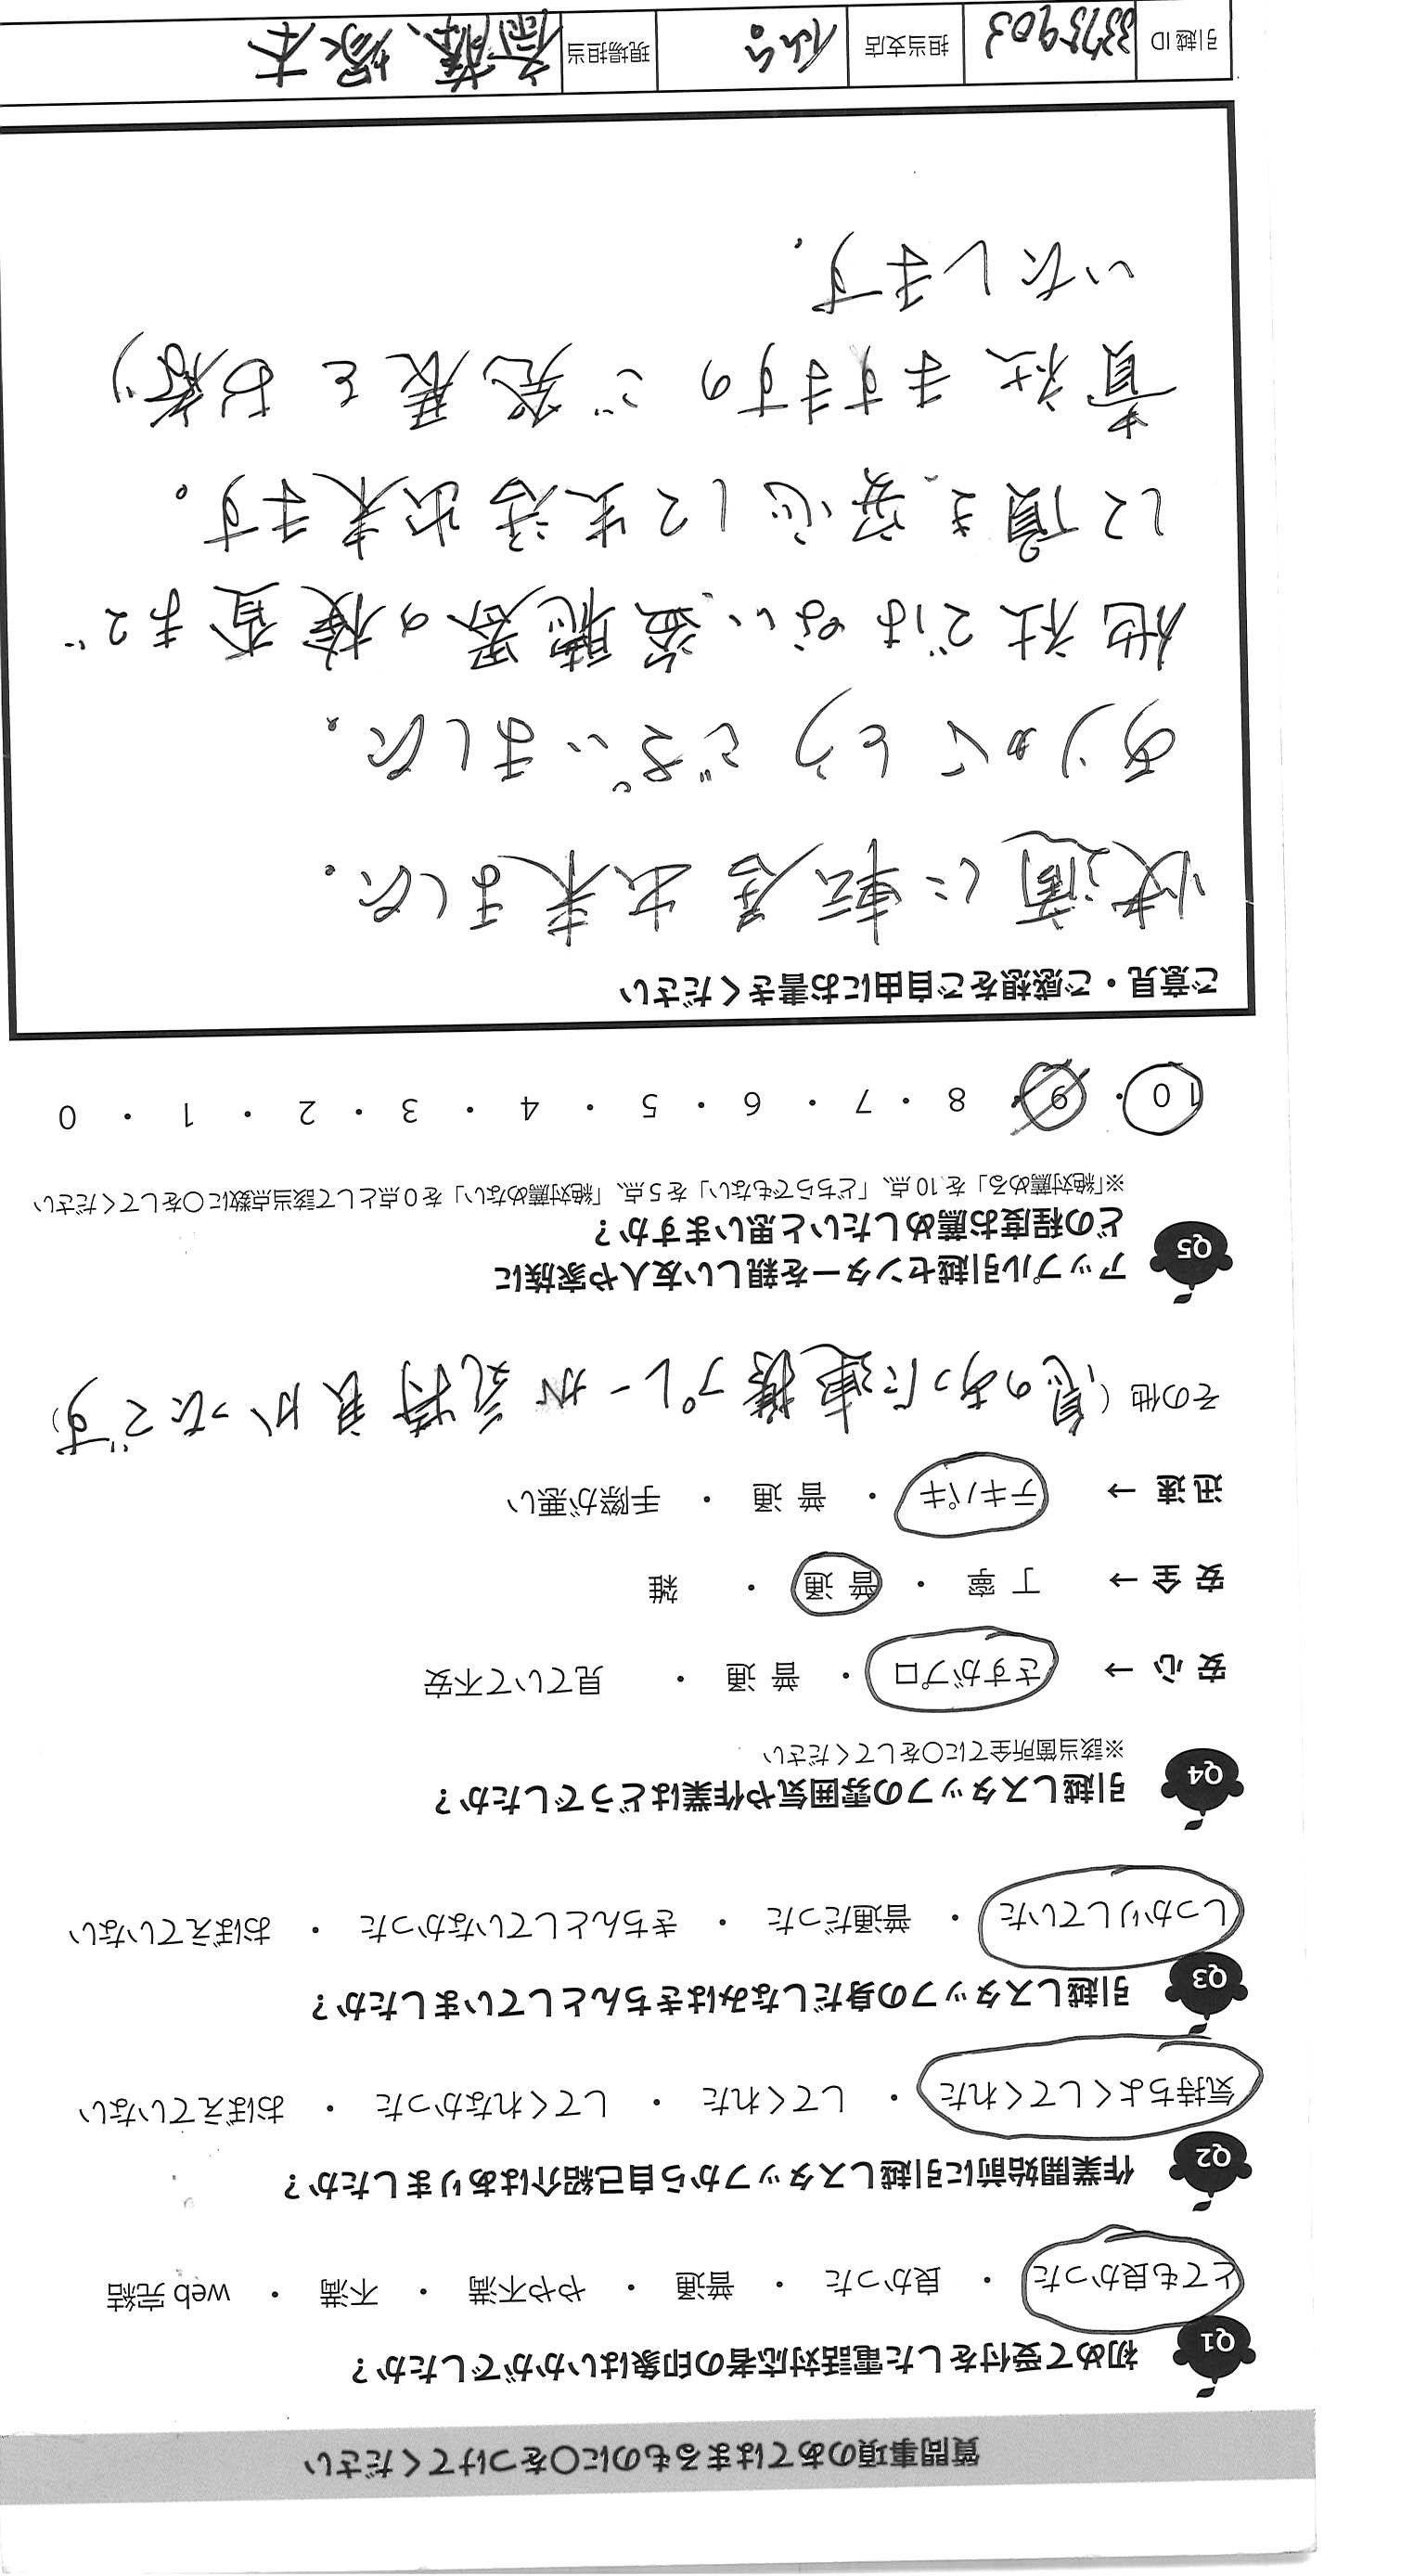 質問事項のあてはまるものに〇をつけてください
Q1 初めて受付をした電話対応者の印象はいかがでしたか？
とても良かった ・ 良かった ・ 普通 ・ やや不満 ・ 不満 ・ web 完結
Q2 作業開始前に引越しスタッフから自己紹介はありましたか？
気持ちよくしてくれた ・ してくれた ・ してくれなかった ・ おぼえていない
Q3 引越しスタッフの身だしなみはきちんとしていましたか？
しっかりしていた ・ 普通だった ・ きちんとしていなかった ・ おぼえていない
Q4 引越しスタッフの雰囲気や作業はどうでしたか？
※該当箇所全てに〇をしてください
安 心 → さすがプロ ・ 普 通 ・ 見ていて不安
安 全 → 丁 寧 ・ 普 通 ・ 雑
迅 速 → テキパキ ・ 普 通 ・ 手際が悪い
その他（息のあった連携プレーが気持良かったです）
Q5 アップル引越センターを親しい友人や家族に
どの程度お薦めしたいと思いますか？
※「絶対薦める」を 10 点、「どちらでもない」を 5 点、「絶対薦めない」を 0 点として該当点数に〇をしてください
10 ・ 9 ・ 8 ・ 7 ・ 6 ・ 5 ・ 4 ・ 3 ・ 2 ・ 1 ・ 0
ご意見・ご感想をご自由にお書きください
快適に転居出来ました。
ありがとうございました。
他社ではない、盗聴器の検査まで
して頂き、安心して生活出来ます。
貴社ますますのご発展をお祈り
いたします。
引越 ID 3375903 担当支店 仙台 現場担当 斎藤、塚本